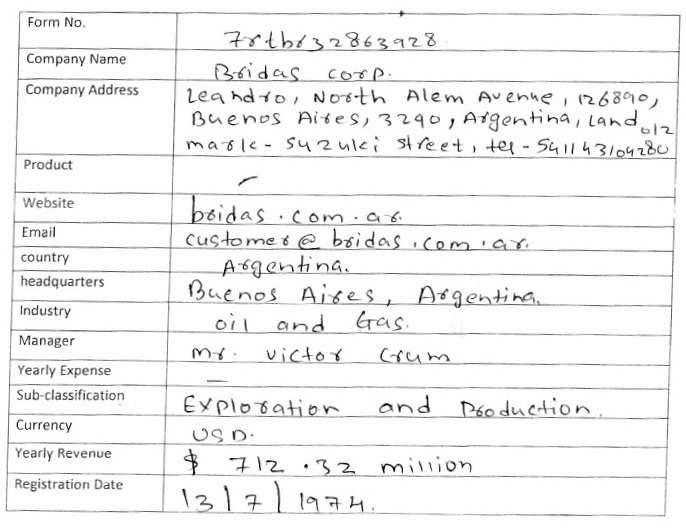 Form No. 7rtbr32863928
Company Name Bridas corp.
Company Address Leandro, North Alem Avenue, 126890,
Buenos Aires, 3290, Argentina, Land 012
mark - Suzuki street, tel - 541143104280
Product -
Website bridas.com.ar.
Email customer@bridas.com.ar.
country Argentina.
headquarters Buenos Aires, Argentina.
Industry oil and Gas.
Manager mr. victor Crum
Yearly Expense -
Sub-classification Exploration and Production.
Currency USD.
Yearly Revenue $ 712.32 million
Registration Date 13|7|1974.